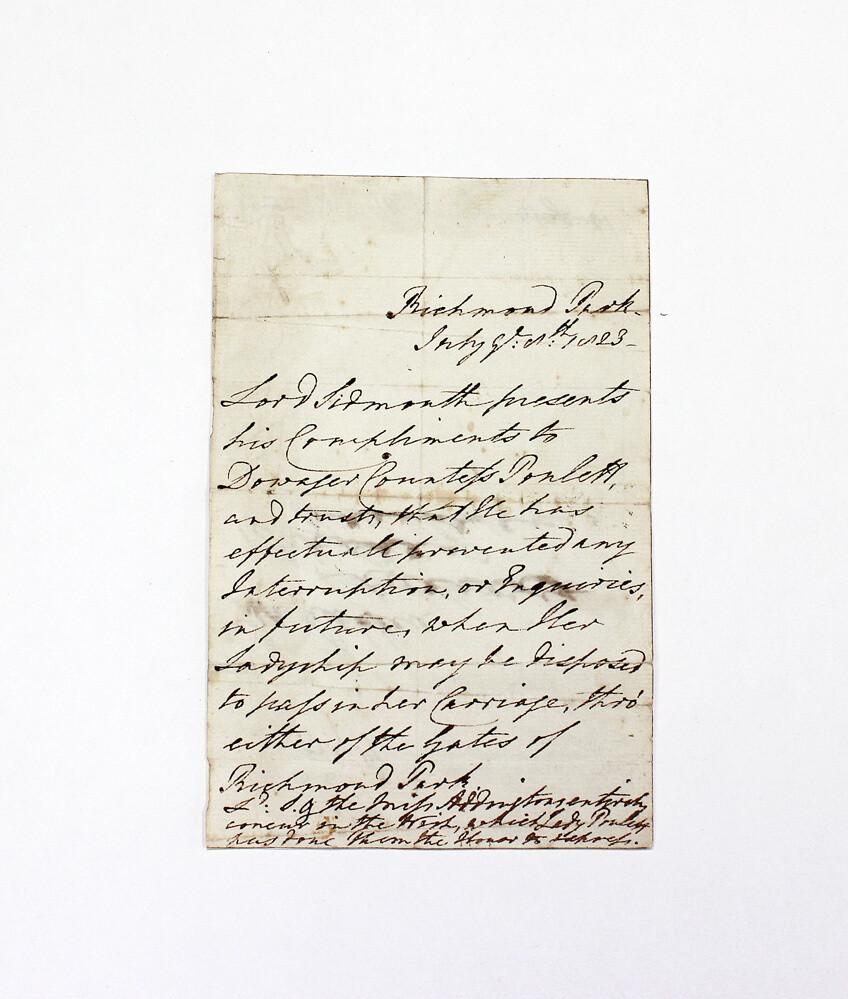 Richmond Park.
July 8th. 1823 -
Lord Sidmouth presents
his Compliments to
Dowager Countess Poulett,
and trusts, that He has
effectuall prevented any
Interruption, or Enquiries,
in future, when Her
Ladyship may be disposed
to pass in her Carriage, thro'
either of the Gates of
Richmond Park.
Ld. S. & the Miss Addingtons entirely
concur in the Wish, which Lady Poulett
has done them the Honor to express.